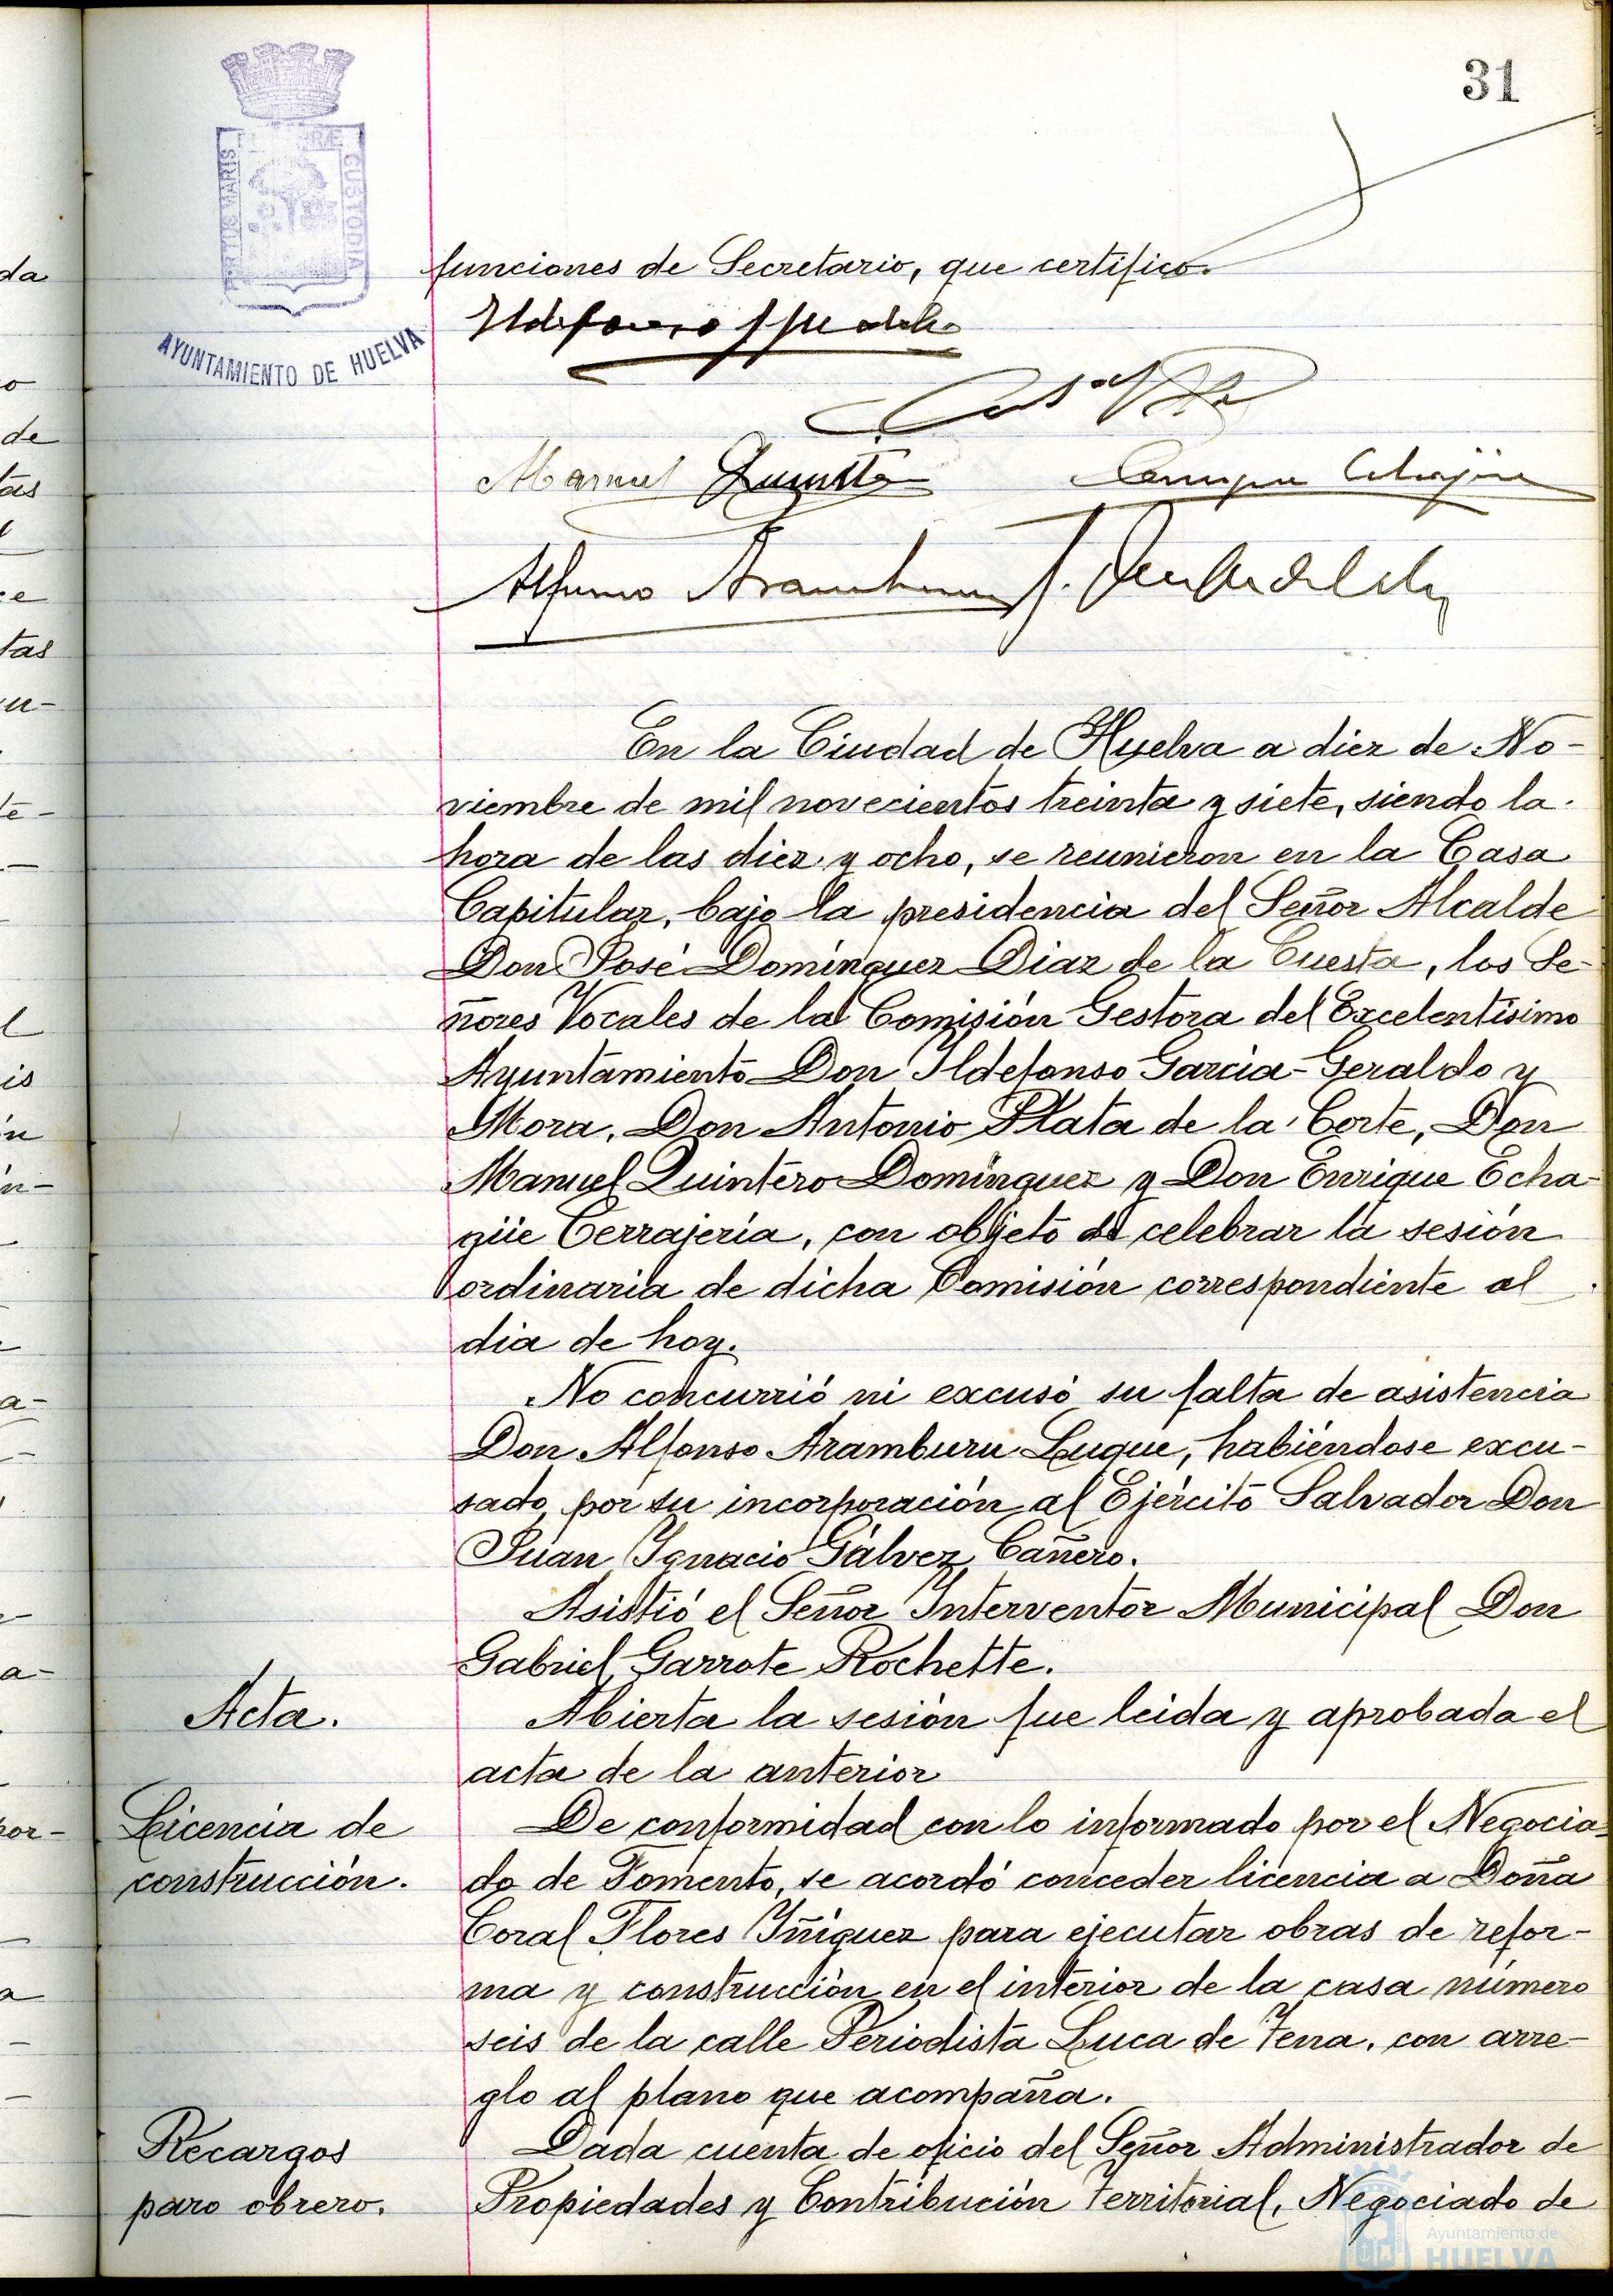 31
PORTUS MARIS
CUSTODIA
AYUNTAMIENTO DE HUELVA
funciones de Secretario, que certifico.
Manuel Quintero
Alfonso Aramburu
En la Ciudad de Huelva a diez de No-
viembre de mil novecientos treinta y siete, siendo la
hora de las diez y ocho, se reunieron en la Casa
Capitular, bajo la presidencia del Señor Alcalde
Don José Domínguez Diaz de la Cuesta, los Se-
ñores Vocales de la Comisión Gestora del Excelentísimo
Ayuntamiento Don Ildefonso Garcia-Geraldo y
Mora, Don Antonio Plata de la Corte, Don
Manuel Quintero Domínguez y Don Enrique Echa-
güe Cerrajería, con objeto de celebrar la sesión
ordinaria de dicha Comisión correspondiente al
dia de hoy.
No concurrió ni excusó su falta de asistencia
Don Alfonso Aramburu Luque, habiéndose excu-
sado, por su incorporación al Ejército Salvador Don
Juan Ignacio Gálvez Cañero.
Asistió el Señor Interventor Municipal Don
Gabriel Garrote Rochette.
Acta.
Abierta la sesión fue leida y aprobada el
acta de la anterior
Licencia de
construcción.
De conformidad con lo informado por el Negocia-
do de Fomento, se acordó conceder licencia a Doña
Coral Flores Iñiguez para ejecutar obras de refor-
ma y construcción en el interior de la casa número
seis de la calle Periodista Luca de Tena, con arre-
glo al plano que acompaña.
Recargos
paro obrero.
Dada cuenta de oficio del Señor Administrador de
Propiedades y Contribución Territorial, Negociado de
Ayuntamiento de
HUELVA